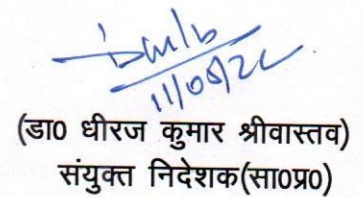 11/05/22
(डा0 धीरज कुमार श्रीवास्तव)
संयुक्त निदेशक(सा0प्र0)